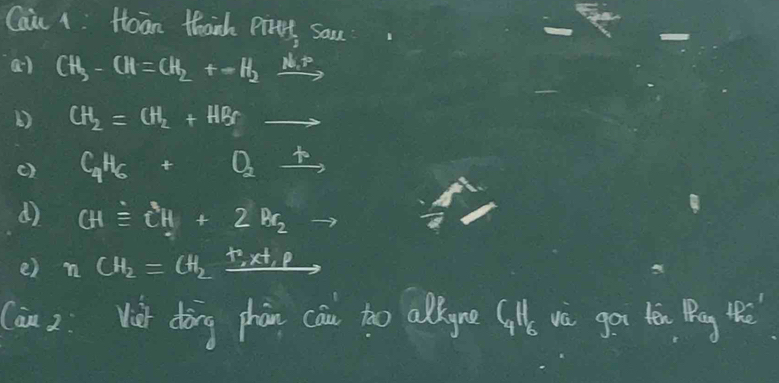 Câu 1: Hoàn thành PTHH sau:
a) CH₃ - CH = CH₂ + H₂ Ni, t° →
b) CH₂ = CH₂ + HBr →
c) C₄H₆ + O₂ t° →
d) CH ≡ CH + 2 Br₂ →
e) n CH₂ = CH₂ t°, xt, p →
Câu 2: Viết đồng phân cấu tạo alkyne C₄H₆ và gọi tên thay thế